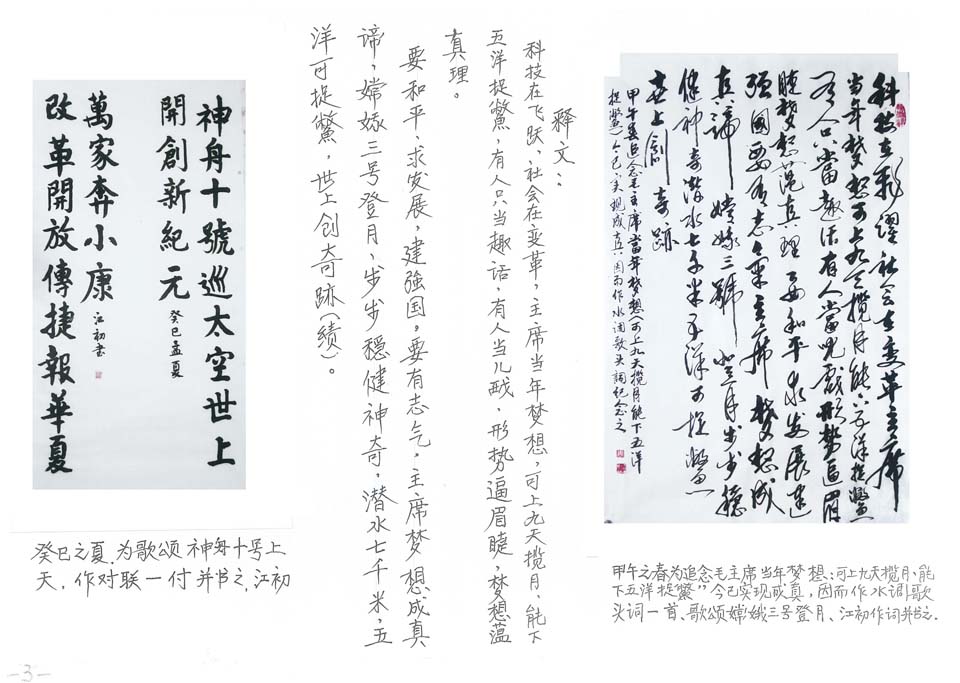 科技在飛躍社会在变革主席
当年梦想可上九天揽月能下五洋捉鳖
有人只當趣话有人當兒戲形势逼眉
睫梦想蕴真理要和平求发展建
强國要有志气主席梦想成
真谛嫦娥三號登月步步穩
健神奇潜水七千米五洋可捉鳖
世上创奇跡
甲午春追念毛主席當年梦想(可上九天揽月能下五洋
捉鳖)今已实现成真因而作水调歌头词纪念之
甲午之春为追念毛主席当年梦想:可上九天揽月、能
下五洋捉鳖"今已实现成真,因而作水调歌
头词一首、歌颂嫦娥三号登月、江初作词并书之.
释文:
科技在飞跃、社会在变革,主席当年梦想,可上九天揽月、能下
五洋捉鳖,有人只当趣话,有人当儿戏,形势逼眉睫,梦想蕰
真理。
要和平,求发展,建强国,要有志气。主席梦想成真
谛,嫦娥三号登月,步步穩健神奇,潜水七千米,五
洋可捉鳖,世上创奇跡(绩)。
神舟十號巡太空世上
開創新紀元
癸巳孟夏
改革開放傳捷報華夏
萬家奔小康
江初书
癸巳之夏,为歌颂神舟十号上
天.作对联一付并书之.江初
-3-